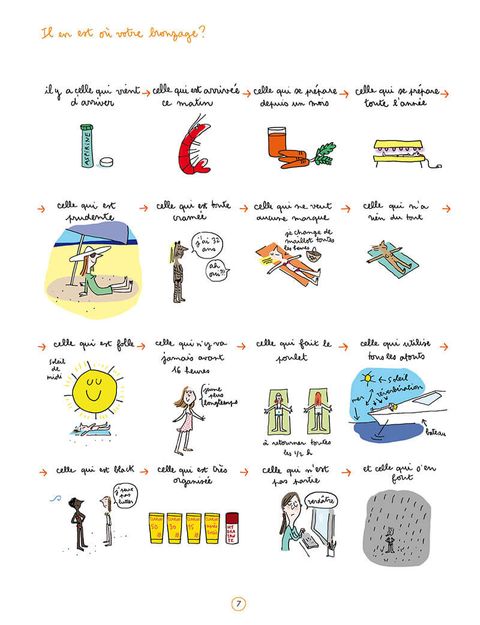 Il en est où votre bronzage ?
il y a celle qui vient
d'arriver
→ celle qui est arrivée
ce matin
→ celle qui se prépare
depuis un mois
→ celle qui se prépare
toute l'année
ASPIRINE
→ celle qui est
prudente
→ celle qui est toute
cramée
j'ai 36
ans
ah
oui?!
→ celle qui ne veut
aucune marque
je change de
maillot toutes
les heures
→ celle qui n'a
rien du tout
→ celle qui est folle
soleil
de
midi
→ celle qui n'y va
jamais avant
16 heures
jeune
plus
longtemps
→ celle qui fait le
poulet
à retourner toutes
les 1/2 h
→ celle qui utilise
tous les atouts
← soleil
réverbération
mer
bateau
→ celle qui est black
j'peux
pas
lutter
→ celle qui est très
organisée
50
30
15
après
HYDRATANTE
→ celle qui n'est
pas partie
verdâtre
→ et celle qui s'en
fout
7